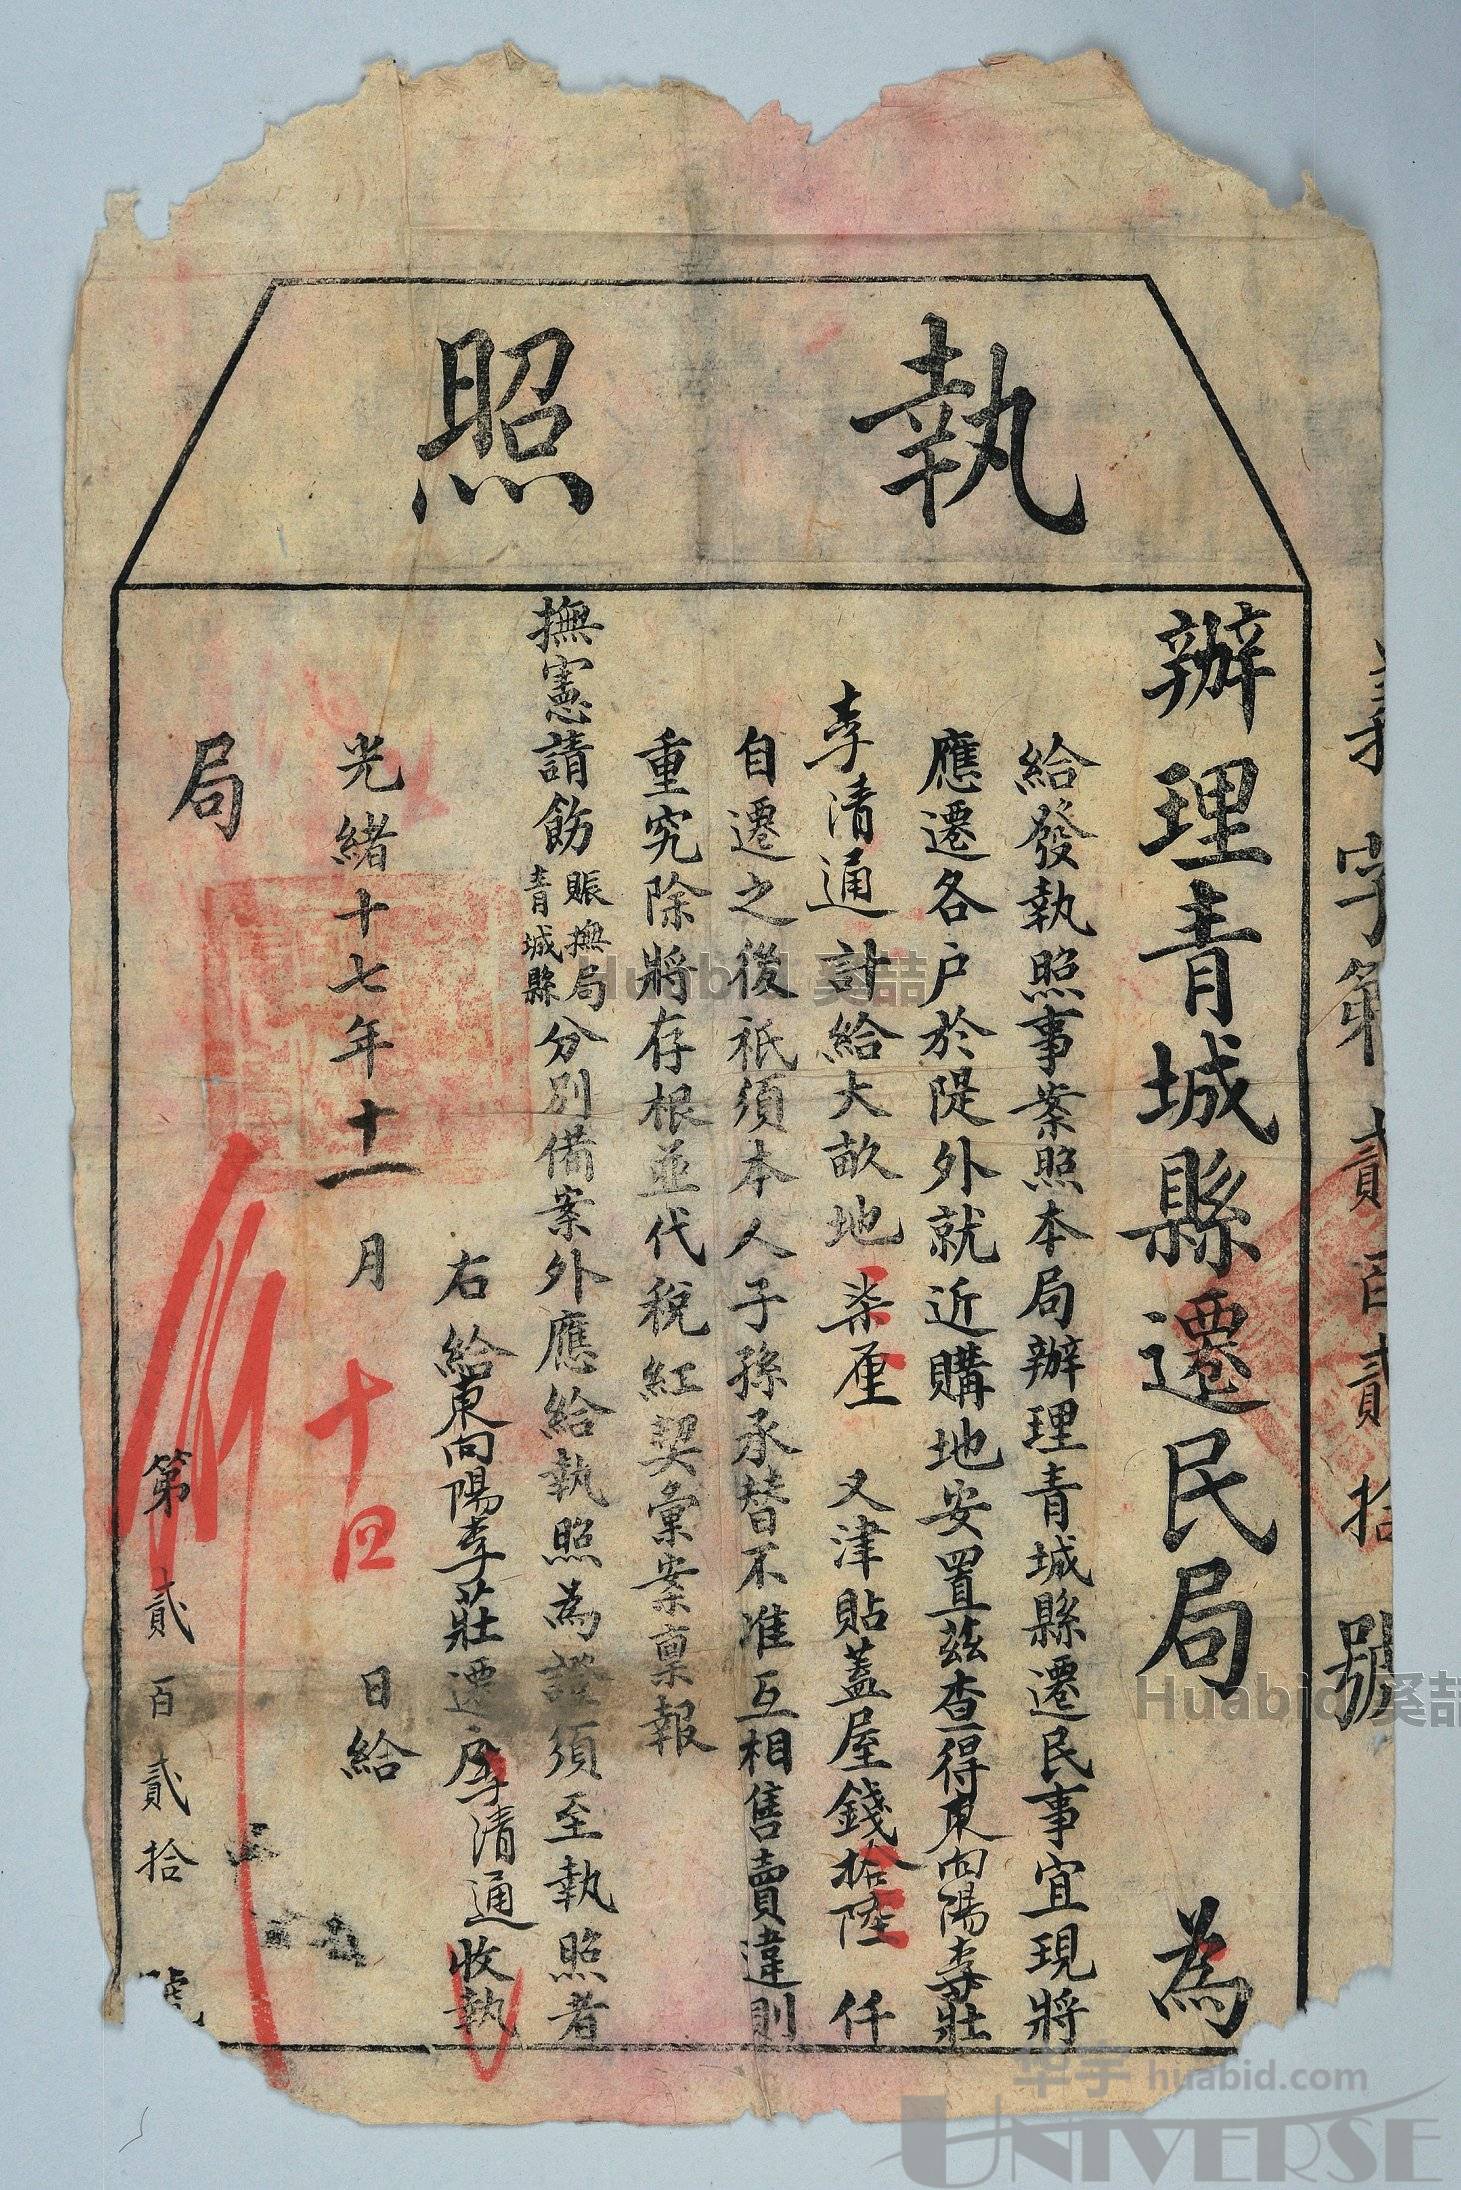 執照
字第貳百貳拾號
辦理青城縣遷民局為
給發執照事案照本局辦理青城縣遷民事宜現將
應遷各户於隄外就近購地安置茲查得東向陽李莊
李清通計給大畝地柒厘又津貼蓋屋錢拾陸仟
自遷之後祇須本人子孫承替不准互相售賣違則
重究除將存根並代稅紅契彙案稟報
撫憲請飭賑撫局青城縣分別備案外應給執照為證須至執照者
右給東向陽李莊遷户李清通收執
光緒十七年十一月十四日給
局
第貳百貳拾號
Huabid 奚喆
Huabid 奚喆
华宇 huabid.com
UNIVERSE